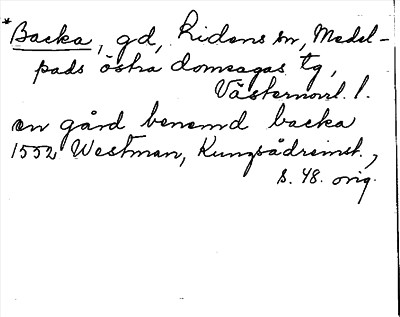 *Backa, gd, Lidens sn, Medel-
pads östra domsagas tg,
Västernorrl. l.
en gård benemd backa
1552 Westman, Kungsådreinst.,
s. 48. orig.